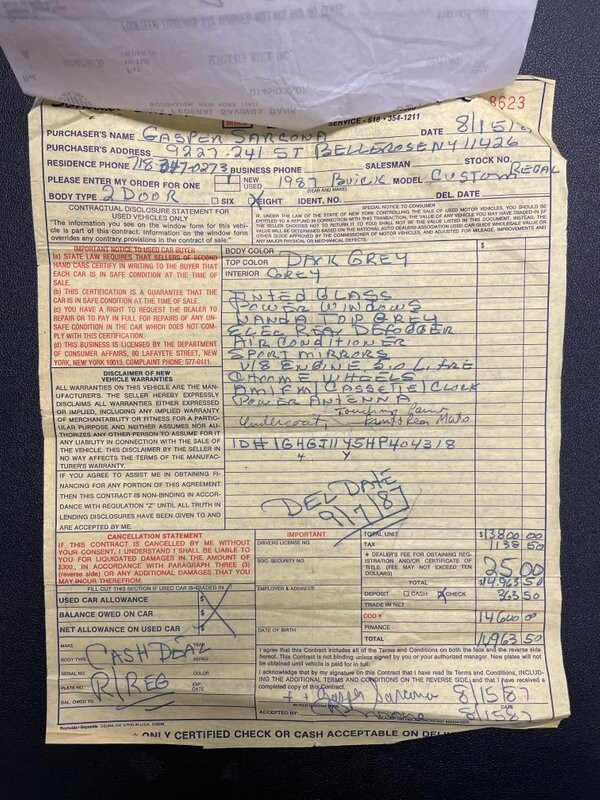 WOODHAVEN NEW YORK 11421
FEDERAL SAVINGS BANK
BUICK
SERVICE - 516 - 354-1211
8623
PURCHASER'S NAME GASPER SARCONA DATE 8/15/8
PURCHASER'S ADDRESS 9227-241 ST BELLEROSE NY 11426
RESIDENCE PHONE 718-347-0273 BUSINESS PHONE SALESMAN STOCK NO.
PLEASE ENTER MY ORDER FOR ONE NEW USED 1987 Buick (YEAR AND MAKE) MODEL CUSTOM REGAL
BODY TYPE 2 DOOR SIX EIGHT IDENT. NO. DEL. DATE
CONTRACTUAL DISCLOSURE STATEMENT FOR
USED VEHICLES ONLY
"The information you see on the window form for this
vehicle is part of this contract. Information on the window form
overrides any contrary provisions in the contract of sale."
SPECIAL NOTICE TO CONSUMER
IMPORTANT NOTICE TO USED CAR BUYER
(a) STATE LAW REQUIRES THAT SELLERS OF SECOND
HAND CARS CERTIFY IN WRITING TO THE BUYER THAT
EACH CAR IS IN SAFE CONDITION AT THE TIME OF
SALE.
(b) THIS CERTIFICATION IS A GUARANTEE THAT THE
CAR IS IN SAFE CONDITION AT THE TIME OF SALE.
(c) YOU HAVE A RIGHT TO REQUEST THE DEALER TO
REPAIR OR TO PAY IN FULL FOR REPAIRS OF ANY UN-
SAFE CONDITION IN THE CAR WHICH DOES NOT COM-
PLY WITH THIS CERTIFICATION.
(d) THIS BUSINESS IS LICENSED BY THE DEPARTMENT
OF CONSUMER AFFAIRS, 80 LAFAYETTE STREET, NEW
YORK, NEW YORK 10013, COMPLAINT PHONE: 577-0111.
DISCLAIMER OF NEW
VEHICLE WARRANTIES
ALL WARRANTIES ON THIS VEHICLE ARE THE MAN-
UFACTURER'S. THE SELLER HEREBY EXPRESSLY
DISCLAIMS ALL WARRANTIES EITHER EXPRESSED
OR IMPLIED, INCLUDING ANY IMPLIED WARRANTY
OF MERCHANTABILITY OR FITNESS FOR A PARTIC-
ULAR PURPOSE AND NEITHER ASSUMES NOR AU-
THORIZES ANY OTHER PERSON TO ASSUME FOR IT
ANY LIABILITY IN CONNECTION WITH THE SALE OF
THE VEHICLE. THIS DISCLAIMER BY THE SELLER IN
NO WAY AFFECTS THE TERMS OF THE MANUFAC-
TURER'S WARRANTY.
IF YOU AGREE TO ASSIST ME IN OBTAINING FI-
NANCING FOR ANY PORTION OF THIS AGREEMENT
THEN THIS CONTRACT IS NON-BINDING IN ACCOR-
DANCE WITH REGULATION "Z" UNTIL ALL TRUTH IN
LENDING DISCLOSURES HAVE BEEN GIVEN TO AND
ARE ACCEPTED BY ME.
CANCELLATION STATEMENT
IF THIS CONTRACT IS CANCELLED BY ME WITHOUT
YOUR CONSENT, I UNDERSTAND I SHALL BE LIABLE
TO YOU FOR LIQUIDATED DAMAGES IN THE AMOUNT OF
$300, IN ACCORDANCE WITH PARAGRAPH THREE (3)
(reverse side) OR ANY ADDITIONAL DAMAGES THAT YOU
MAY INCUR THEREFROM.
FILL OUT THIS SECTION IF USED CAR IS TRADED IN
USED CAR ALLOWANCE $
BALANCE OWED ON CAR $
NET ALLOWANCE ON USED CAR $
MAKE:
CASH DEAL
BODY TYPE: SERIES
SERIAL NO. COLOR
R/REG
PLATE NO. EXP. DATE
BAL. OWED TO
BODY COLOR
TOP COLOR DARK GREY
INTERIOR GREY
TINTED GLASS
POWER WINDOWS
LANDA TOP GREY
ELEC REAR DEFOGGER
AIR CONDITIONER
SPORT MIRRORS
V/8 ENGINE 5.0 LITRE
CHROME WHEELS
AM/FM/CASSETTE/CLOCK
POWER ANTENNA
Undercoat,
ID# 1G4GJ11Y5HP404318
4 Y
DEL DATE
9/7/87
IMPORTANT
DRIVERS LICENSE NO.
SOC. SECURITY NO.
EMPLOYER & ADDRESS
DATE OF BIRTH
TOTAL UNIT $13800 00
TAX 1138 50
* DEALER'S FEE FOR OBTAINING REG-
ISTRATION AND/OR CERTIFICATE OF
TITLE. (FEE MAY NOT EXCEED TEN
DOLLARS) 25 00
TOTAL $14963 50
DEPOSIT CASH CHECK 363 50
TRADE IN NET
COD* 14600 00
FINANCE
TOTAL 14963 50
I agree that this Contract includes all of the Terms and Conditions on both the face and the reverse
side hereof. This Contract is not binding unless signed by you or your authorized manager. New plates will not
be obtained until vehicle is paid for in full.
I acknowledge that by my signature on this contract that I have read its Terms and Conditions, INCLUD-
ING THE ADDITIONAL TERMS AND CONDITIONS ON THE REVERSE SIDE; and that I have received a
completed copy of this Contract.
Gasper Sarcona 8/15/87
ACCEPTED BY 8/15/87
* ONLY CERTIFIED CHECK OR CASH ACCEPTABLE ON DELIV